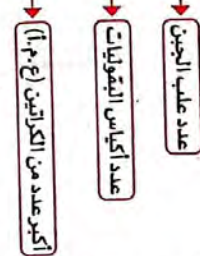 عدد علب الجبن
عدد أكياس البقوليات
أكبر عدد من الكراتين (ع.م.أ)